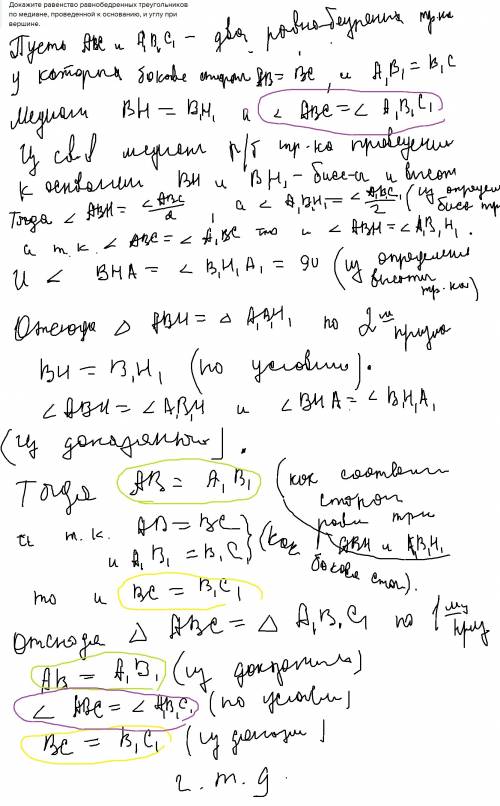 Докажите равенство равнобедренных треугольников
по медиане, проведенной к основанию, и углу при
вершине.
Пусть ABC и A₁B₁C₁ - два равнобедренных тр-ка
у которых боковые стороны AB = BC, и A₁B₁ = B₁C
Медианы BH = B₁H₁ и ∠ ABC = ∠ A₁B₁C₁
Из св-в медианы р/б тр-ка проведенной
к основанию BH и BH₁ - бисс-сы и высоты
Тогда ∠ ABH = ∠ABC/2, а ∠ A₁BH₁ = ∠A₁BC₁/2 (из определ
бисс тр
а т.к. ∠ ABC = ∠ A₁BC то и ∠ABH = ∠AB₁H₁.
И ∠ BHA = ∠ B₁H₁A₁ = 90 (из определения
высоты
тр.ка)
Отсюда △ ABH = △ A₁B₁H₁ по 2
BH = B₁H₁ (по условию).
∠ABH = ∠AB₁H и ∠BHA = ∠B₁H₁A₁
(из доказанного).
Тогда AB = A₁B₁ (как соответ
сторон
равн тре
ABH и A₁B₁H₁
и т.к. AB = BC
и A₁B₁ = B₁C₁ (как
бокова стор).
то и BC = B₁C₁
Отсюда △ ABC = △ A₁B₁C₁ по 1
AB = A₁B₁ (из
∠ ABC = ∠A₁B₁C₁ (по условию)
BC = B₁C₁ (из
ч.т.д.